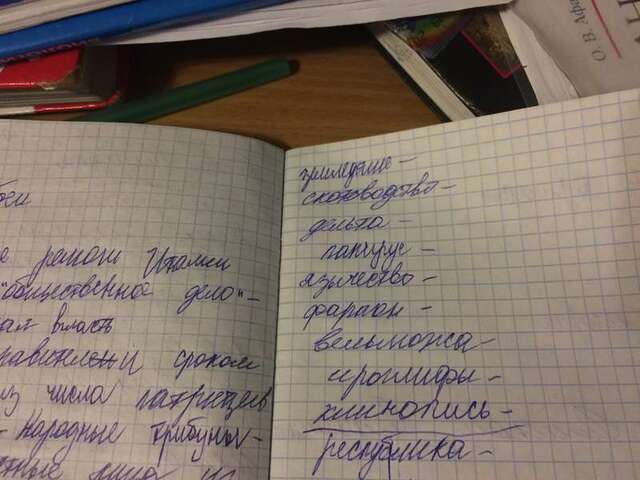 О. В. Афа
е районы Италии
"общественное дело"-
ая власть
правители сроком
из числа патрициев
- Народные трибуны-
земледелие-
скотоводство-
дельта-
папирус-
язычество-
фараон-
вельможа-
иероглифы-
клинопись-
республика-